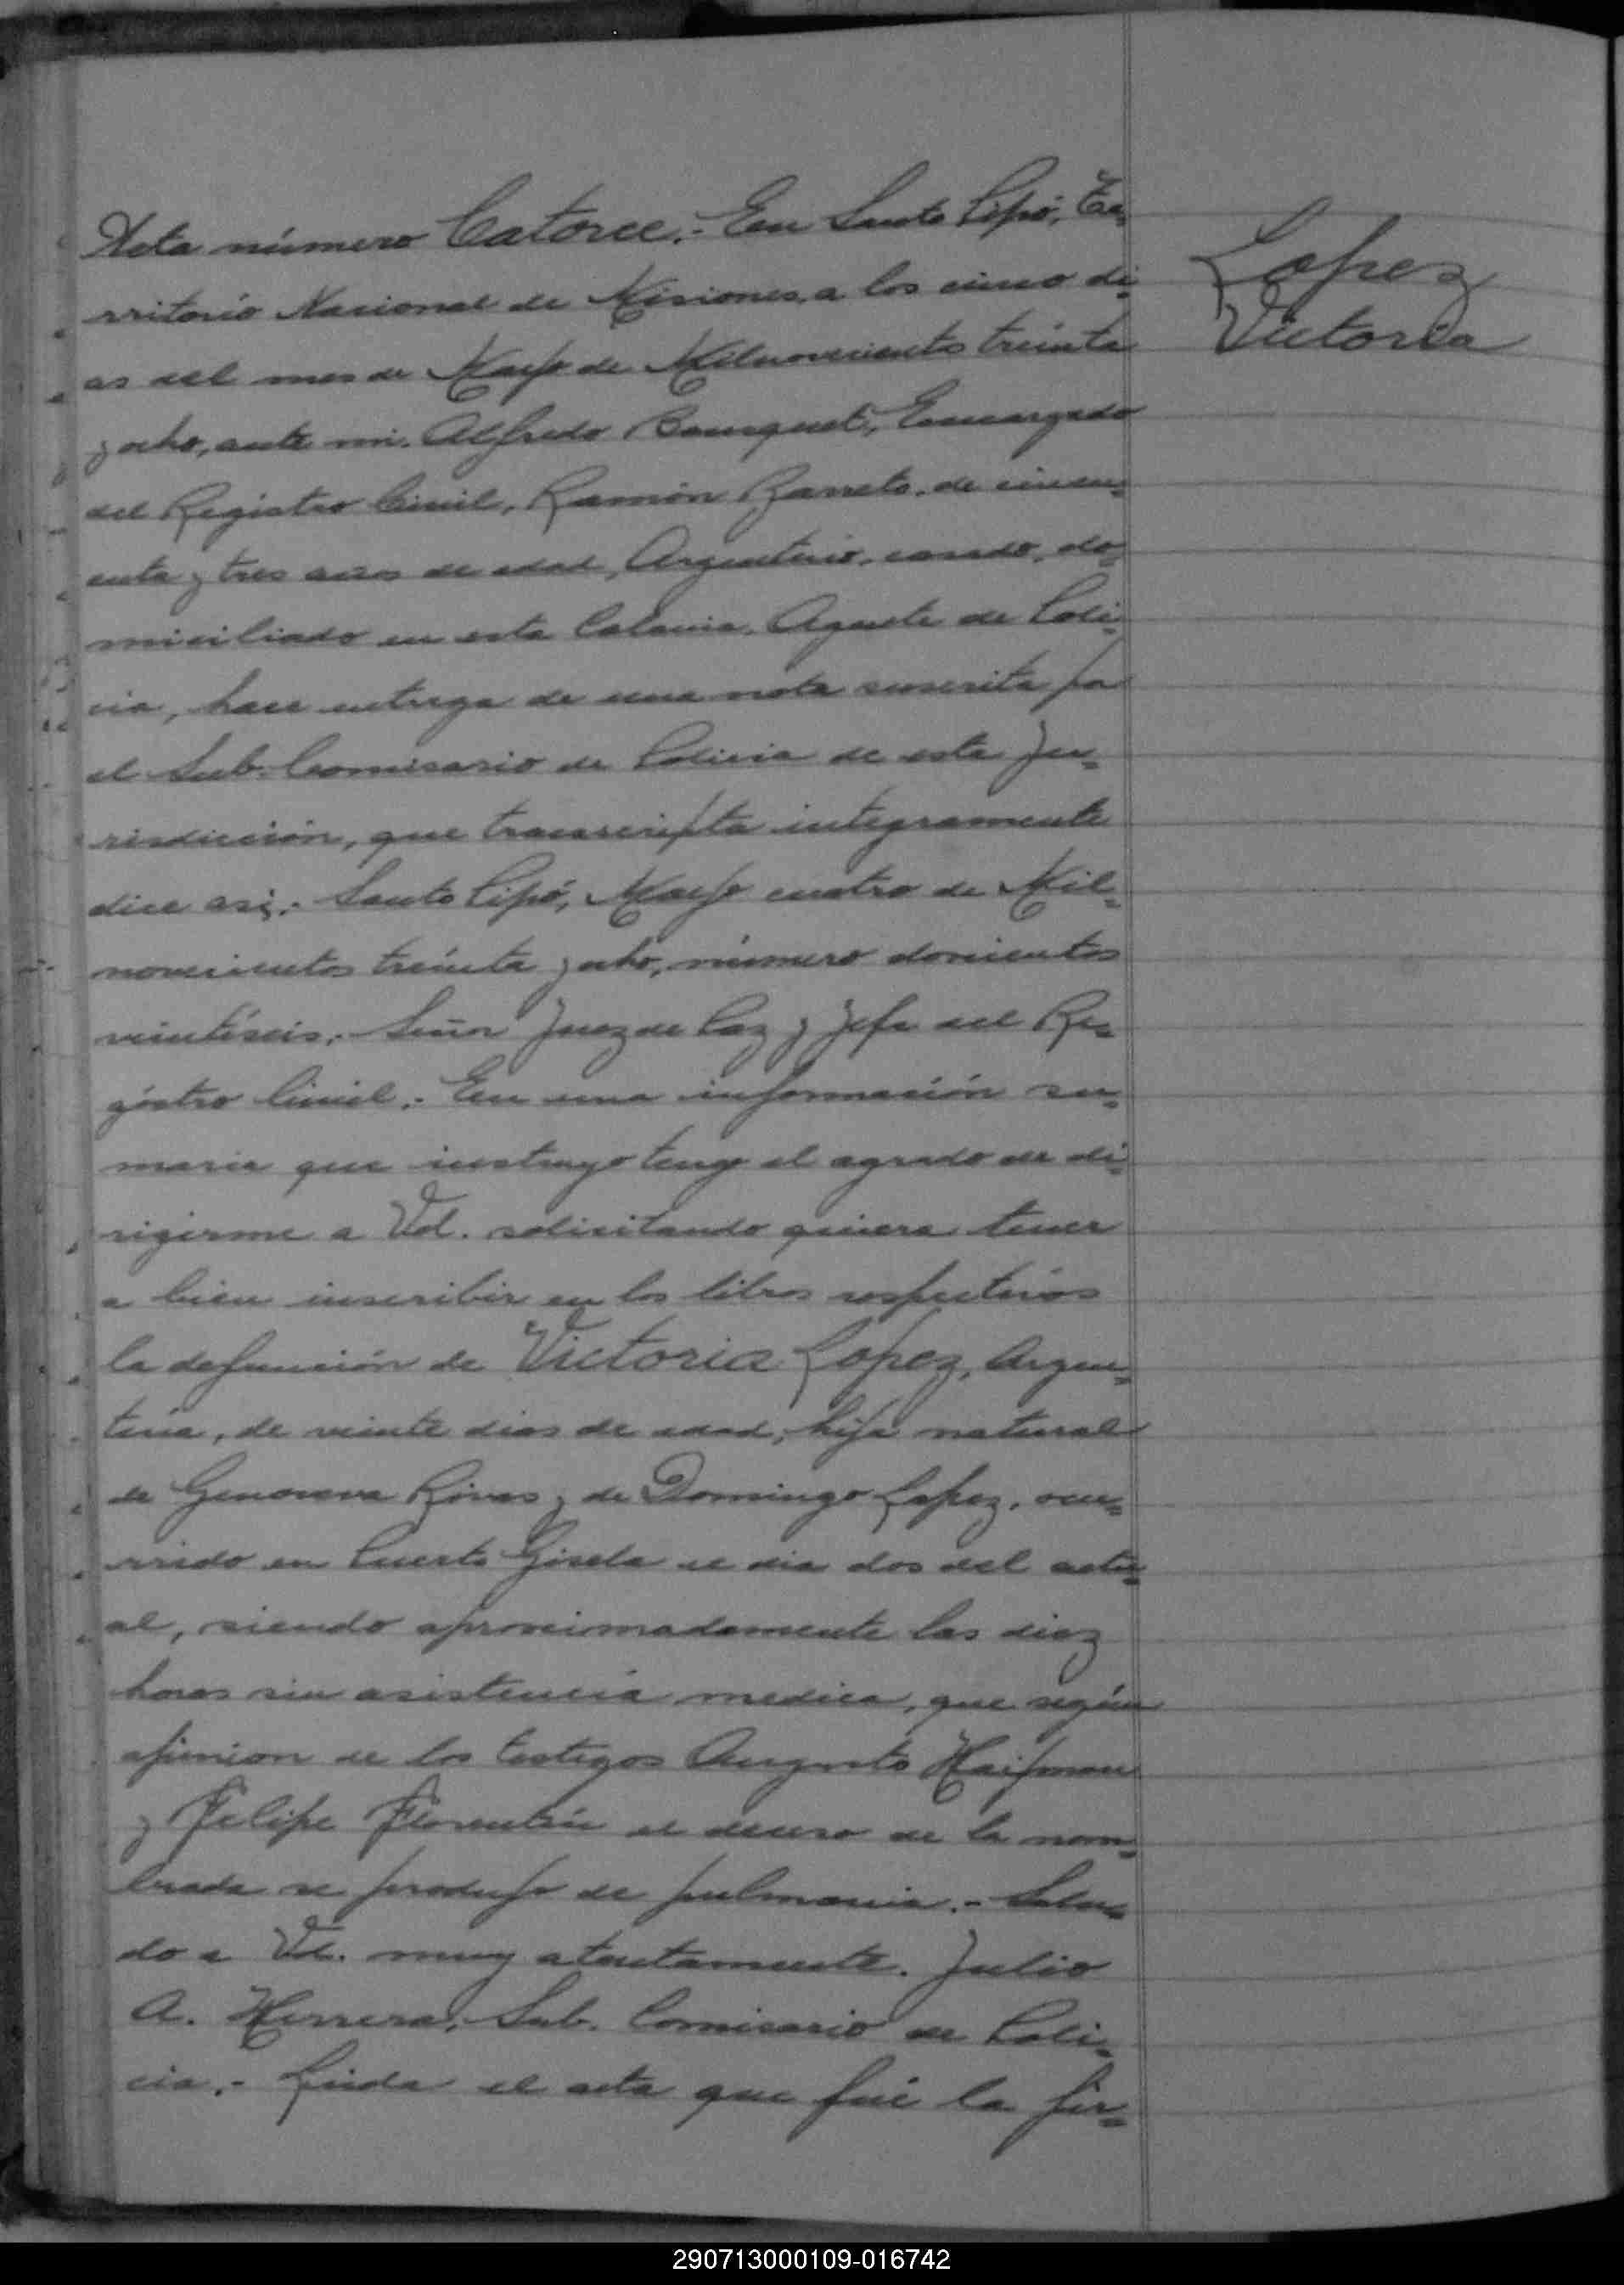 Acta número Catorce.- En Santo Pipó, Te=
rritorio Nacional de Misiones, a los cinco di=
as del mes de Mayo de Milnovecientos treinta
y ocho, ante mi, Alfredo Encargado
del Registro Civil, Ramón Barreto, de cincu=
enta y tres años de edad, Argentino, casado, do=
miciliado en esta Colonia, Agente de Poli=
cia, hace entrega de una nota suscrita por
el Sub-Comisario de Policia de esta Ju=
risdicción, que transcripta integramente
dice asi:- Santo Pipó, Mayo cuatro de Mil=
novecientos treinta y ocho, número doscientos
veintiseis.- Señor Juez de Paz y Jefe del Re=
gistro Civil:- En una información su=
maria que instruyo tengo el agrado de di=
rigirme a Vd. solicitando quiera tener
a bien inscribir en los libros respectivos
la defunción de Victoria Lopez, Argen=
tina, de veinte dias de edad, hija natural
de Genoveva Rivas y de Domingo Lopez, ocu=
rrido en Puerto Gisela el dia dos del actu=
al, siendo aproximadamente las diez
horas sin asistencia medica, que según
opinion de los testigos Augusto
y Felipe Florentin el deceso de la nom=
brada se produjo de pulmonia.- Salu=
do a Vd. muy atentamente. Julio
A. Herrera, Sub-Comisario de Poli=
cia.- Leida el acta que fué la fir=
Lopez
Victoria
290713000109-016742